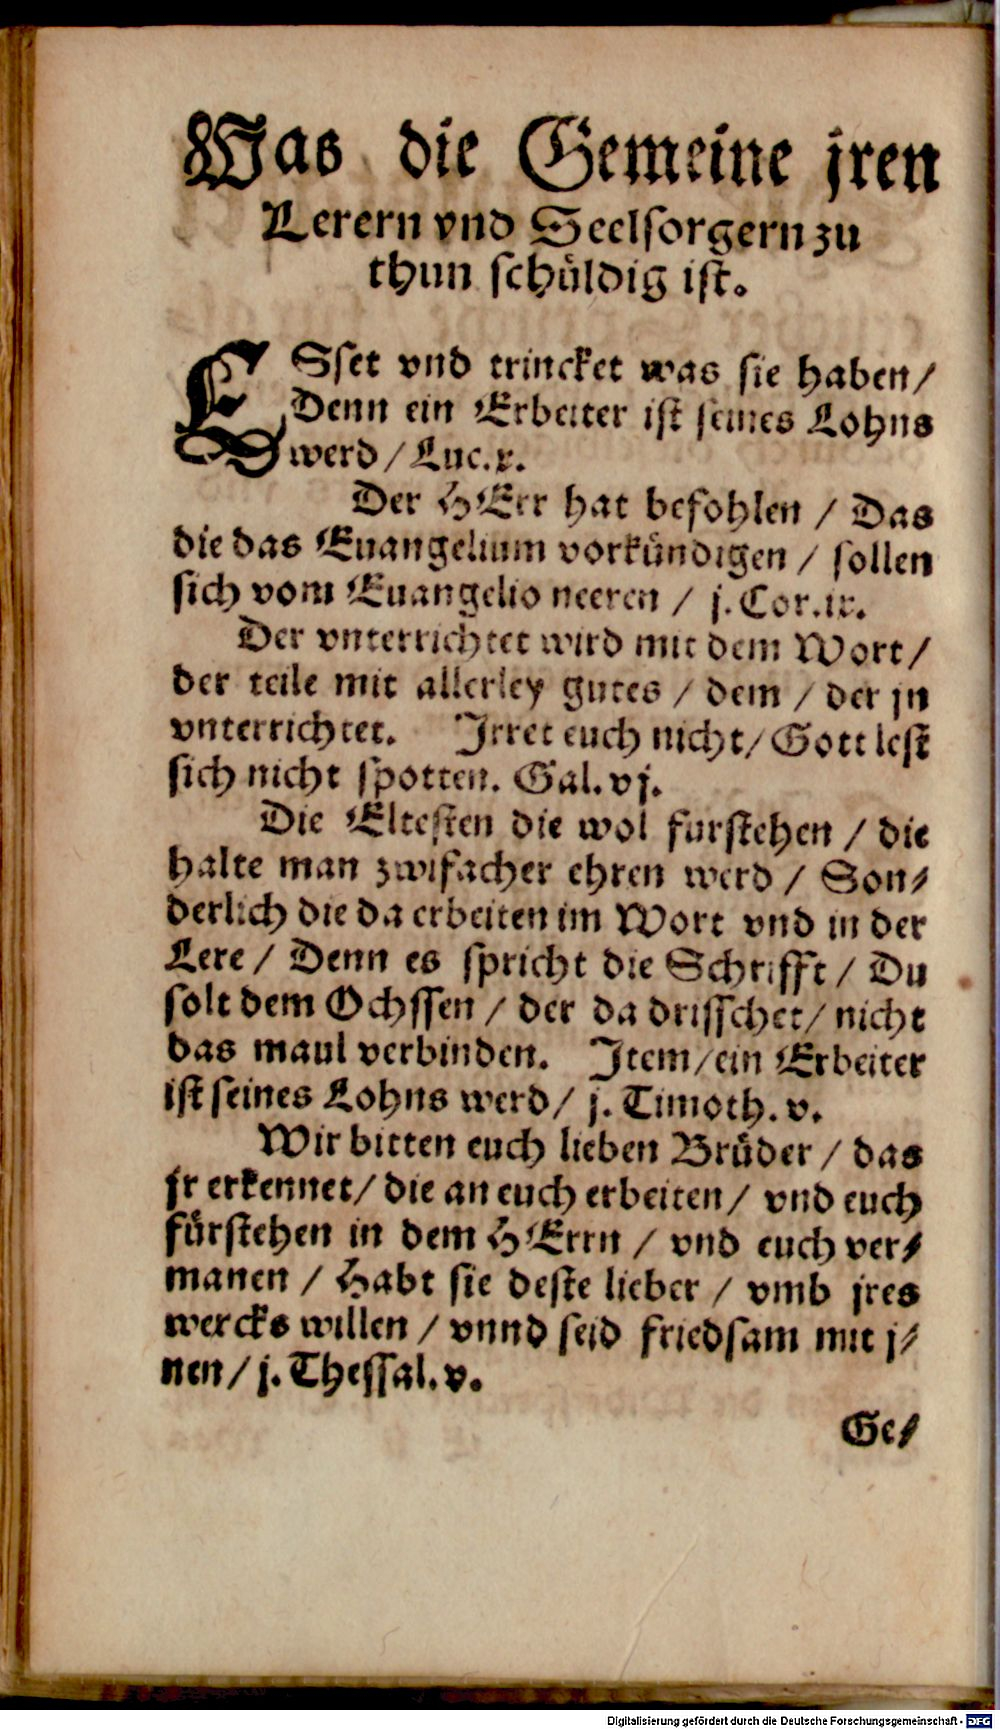 Was die Gemeine jren
Lerern vnd Seelsorgern zu
thun schüldig ist.
ESset vnd trincket was sie haben/
Denn ein Erbeiter ist seines Lohns
werd/ Luc.x.
Der HErr hat befohlen / Das
die das Euangelium vorkündigen / sollen
sich vom Euangelio neeren / j. Cor.ix.
Der vnterrichtet wird mit dem Wort /
der teile mit allerley gutes / dem / der jn
vnterrichtet. Irret euch nicht/ Gott lest
sich nicht spotten. Gal. vj.
Die Eltesten die wol furstehen / die
halte man zwifacher ehren werd / Son⸗
derlich die da erbeiten im Wort vnd in der
Lere / Denn es spricht die Schrifft / Du
solt dem Ochssen / der da drisschet/ nicht
das maul verbinden. Item/ ein Erbeiter
ist seines Lohns werd/ j. Timoth. v.
Wir bitten euch lieben Brüder / das
jr erkennet/ die an euch erbeiten / vnd euch
fürstehen in dem HErrn / vnd euch ver⸗
manen / Habt sie deste lieber / vmb jres
wercks willen / vnnd seid friedsam mit j⸗
nen / j. Thessal. v.
Ge⸗
Digitalisierung gefördert durch die Deutsche Forschungsgemeinschaft - DFG